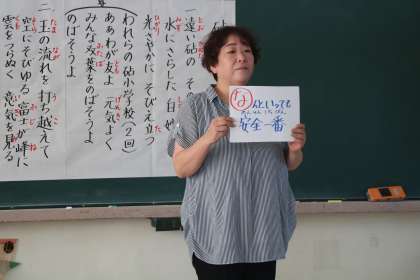 一 遠い砧の
水にさらした 白
光さやかに そびえ立つ
われらの砧小学校(2回)
ああわが友よ 元気よく
みんな双葉をのばそうよ
のばそうよ
二 玉の流れを 打ち越えて
空にそびゆる 富士が峰に
雲をつらぬく 意気を見る
なんといっても
あんぜんいちばん
安全一番